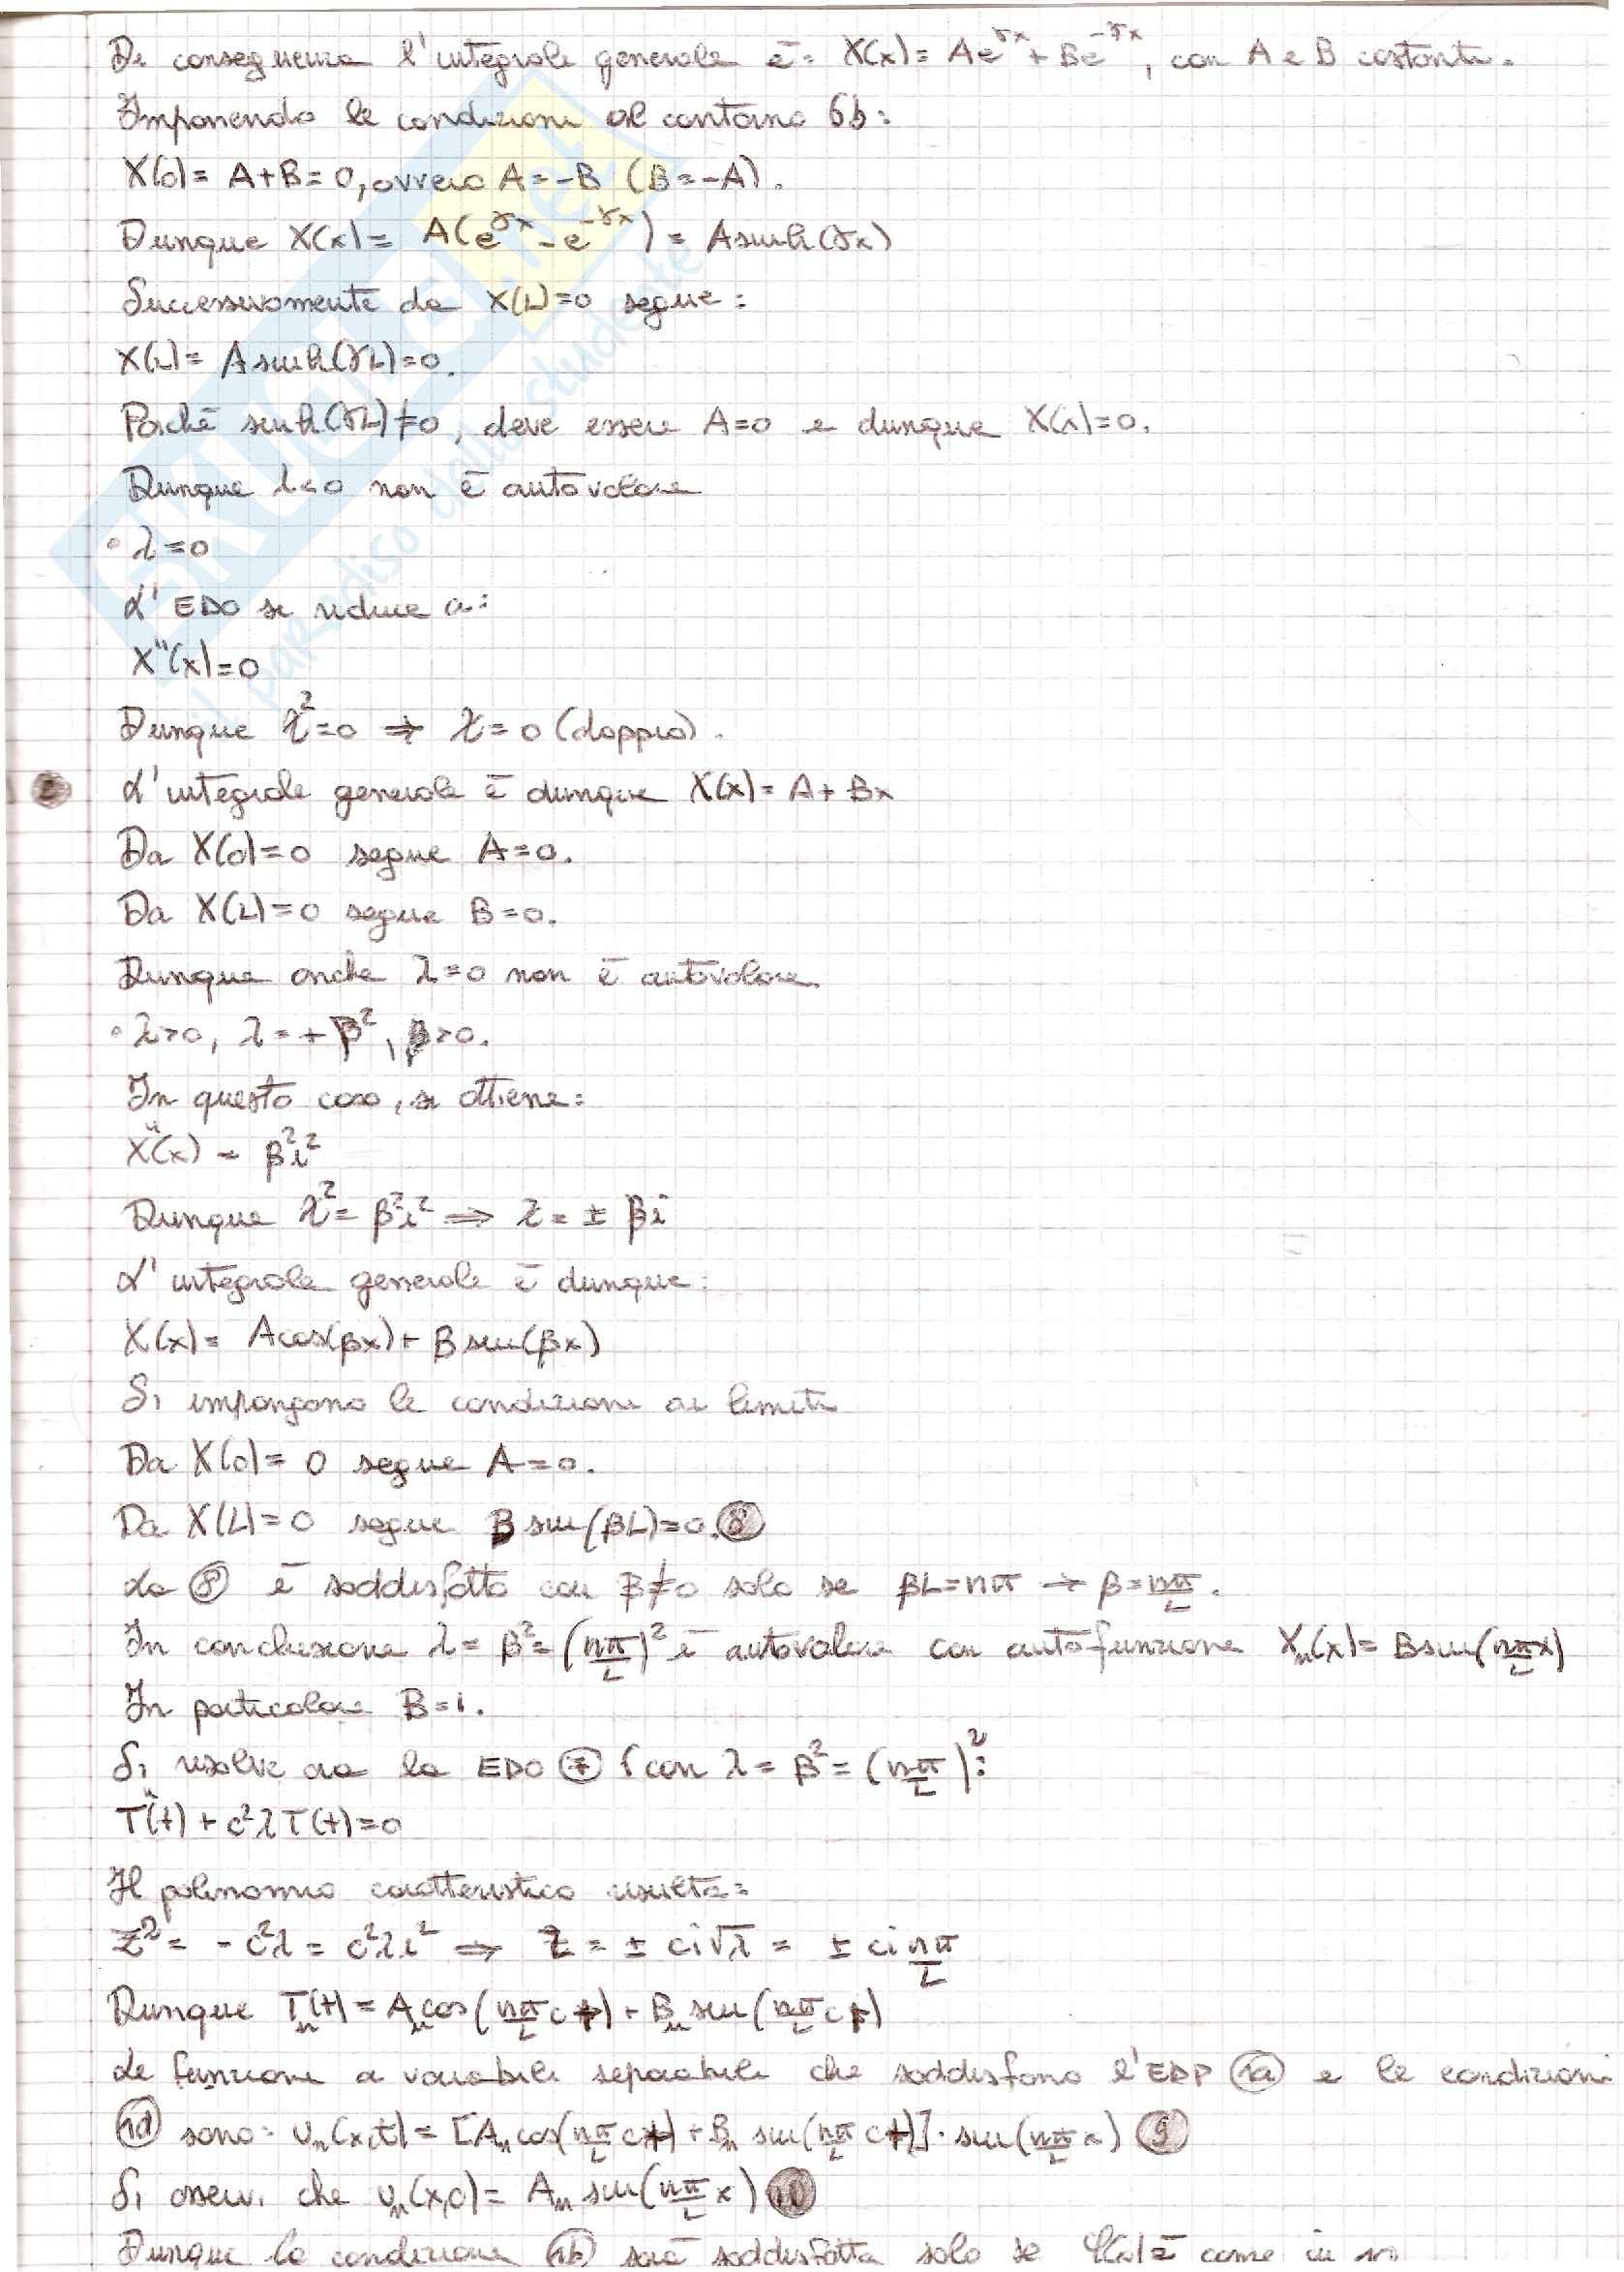 Di conseguenza l'integrale generale è: X(x) = Ae^γx + Be^-γx, con A e B costanti.
Imponendo le condizioni al contorno 6b:
X(0) = A+B = 0, ovvero A = -B (B = -A).
Dunque X(x) = A(e^γx - e^-γx) = A senh(γx)
Successivamente da X(L)=0 segue:
X(L) = A senh(γL)=0.
Poiché senh(γL)≠0, deve essere A=0 e dunque X(x)=0.
Dunque λ<0 non è autovalore
• λ=0
L'EDO si riduce a:
X''(x)=0
Dunque λ²=0 ⇒ λ=0 (doppia).
L'integrale generale è dunque X(x) = A + Bx
Da X(0)=0 segue A=0.
Da X(L)=0 segue B=0.
Dunque anche λ=0 non è autovalore.
• λ>0, λ = +β², β>0.
In questo caso, si ottiene:
X''(x) = β²i²
Dunque λ² = β²i² ⇒ λ = ± βi
L'integrale generale è dunque:
X(x) = A cos(βx) + B sen(βx)
Si impongono le condizioni ai limiti
Da X(0) = 0 segue A=0.
Da X(L)=0 segue B sen(βL)=0. 8
La 8 è soddisfatta con B≠0 solo se βL=nπ → β=nπ/L.
In conclusione λ = β² = (nπ/L)² è autovalore con autofunzione Xn(x) = B sen(nπ/L x)
In particolare B=1.
Si risolve ora la EDO 7 con λ = β² = (nπ/L)²:
T''(t) + c²λT(t)=0
Il polinomio caratteristico risulta:
Z² = -c²λ = c²λi² ⇒ Z = ± ci√λ = ± ci nπ/L
Dunque Tn(t) = An cos(nπ/L ct) + Bn sen(nπ/L ct)
Le funzioni a variabili separabili che soddisfano l'EDP 1a e le condizioni
1d sono: un(x,t) = [An cos(nπ/L ct) + Bn sen(nπ/L ct)] · sen(nπ/L x) 9
Si osservi che un(x,0) = An sen(nπ/L x) 10
Dunque la condizione 1b sarà soddisfatta solo se φ(x) è come in 10
SKUOLA.net
il paradiso dello studente